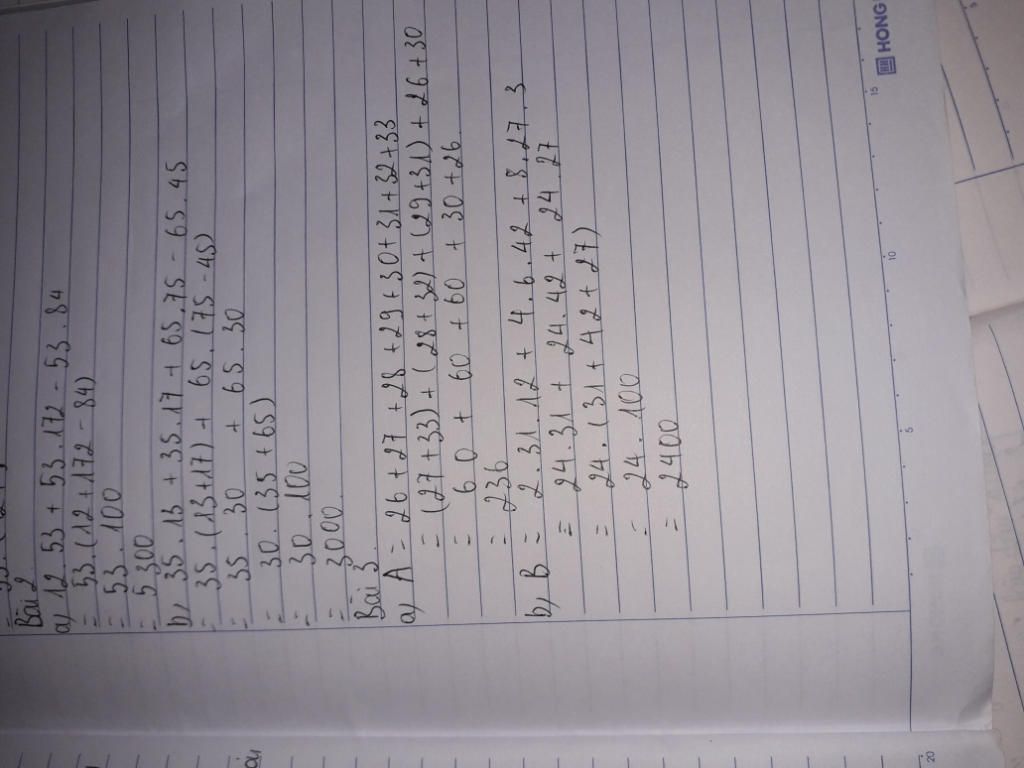 Bài 2.
a) 12.53 + 53.172 - 53.84
= 53.(12+172 - 84)
= 53.100
= 5300
b) 35.13 + 35.17 + 65.75 - 65.45
= 35.(13+17) + 65.(75-45)
= 35.30 + 65.30
= 30.(35+65)
= 30.100
= 3000.
Bài 3.
a) A = 26+27+28+29+30+31+32+33
= (27+33)+(28+32)+(29+31)+26+30
= 60 + 60 + 60 + 30+26.
= 236
b) B = 2.31.12 + 4.6.42 + 8.27.3
= 24.31 + 24.42 + 24.27
= 24.(31+42+27)
= 24.100
= 2400
HONG
5
10
15
20